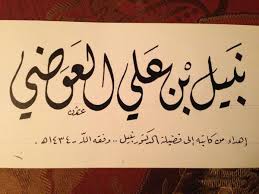 نبيل بن علي العوضي
إهداء من كاتبه إلى فضيلة الدكتور نبيل .. وفقه الله ١٤٣٤هـ.